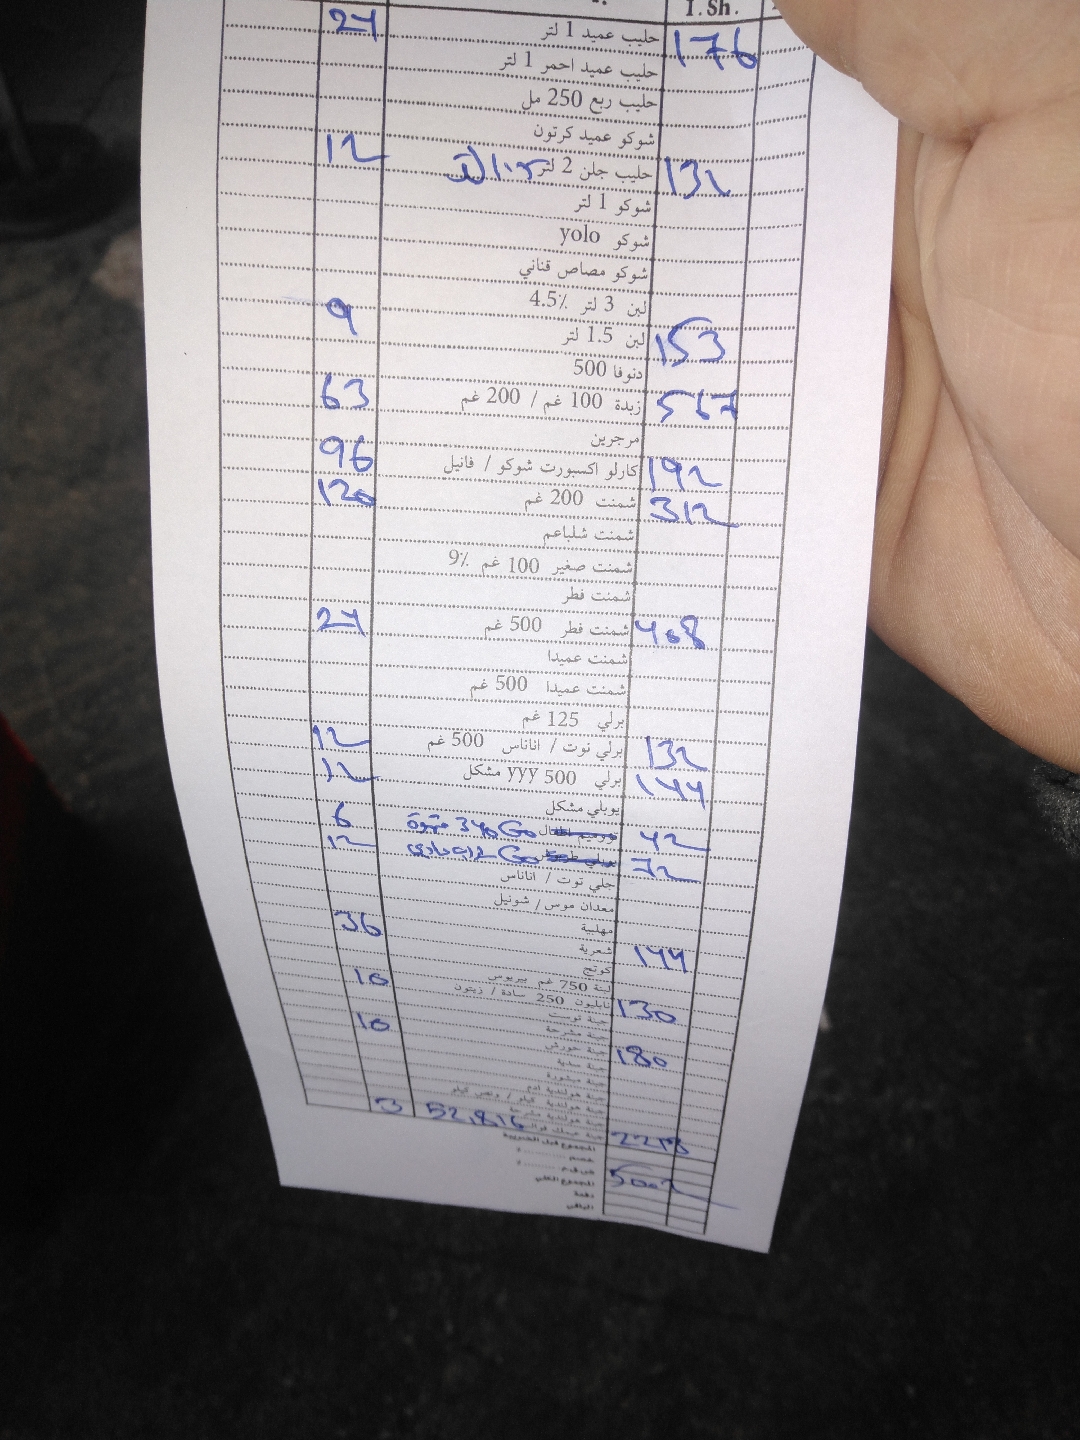 I. Sh.
24 حليب عميد 1 لتر 176
حليب عميد احمر 1 لتر
حليب ربع 250 مل
شوكو عميد كرتون
12 حليب جلن 2 لتر 132
شوكو 1 لتر
شوكو yolo
شوكو مصاص قناني
لبن 3 لتر 4.5٪
9 لبن 1.5 لتر 153
دنوفا 500
63 زبدة 100 غم / 200 غم 567
مرجرين
96 كارلو اكسبورت شوكو / فانيل 192
120 شمنت 200 غم 312
شمنت شلباعم
شمنت صغير 100 غم 9٪
شمنت فطر
24 شمنت فطر 500 غم 408
شمنت عميدا
شمنت عميدا 500 غم
برلي 125 غم
12 برلي توت / اناناس 500 غم 132
12 برلي yyy 500 مشكل 144
يوبلي مشكل
6 Go 340 قهوة 42
12 Go 72
جلي توت / اناناس
معدان موس / شونيل
مهلبية
36 شعرية 144
كوتج
10 لبنة 750 غم بيريوس
نابليون 250 سادة / زيتون 130
جبنة توست
10 جبنة مشرحة
جبنة حورش 180
جبنة صدية
جبنة مبشورة
جبنة هولندية ادم
جبنة هولندية كيلو / ونص كيلو
جبنة هولندية مشرحة
3 52,816 2218
المجموع قبل الضريبة
خصم
ض.ق.م 5002
المجموع الكلي
دفعة
الباقي